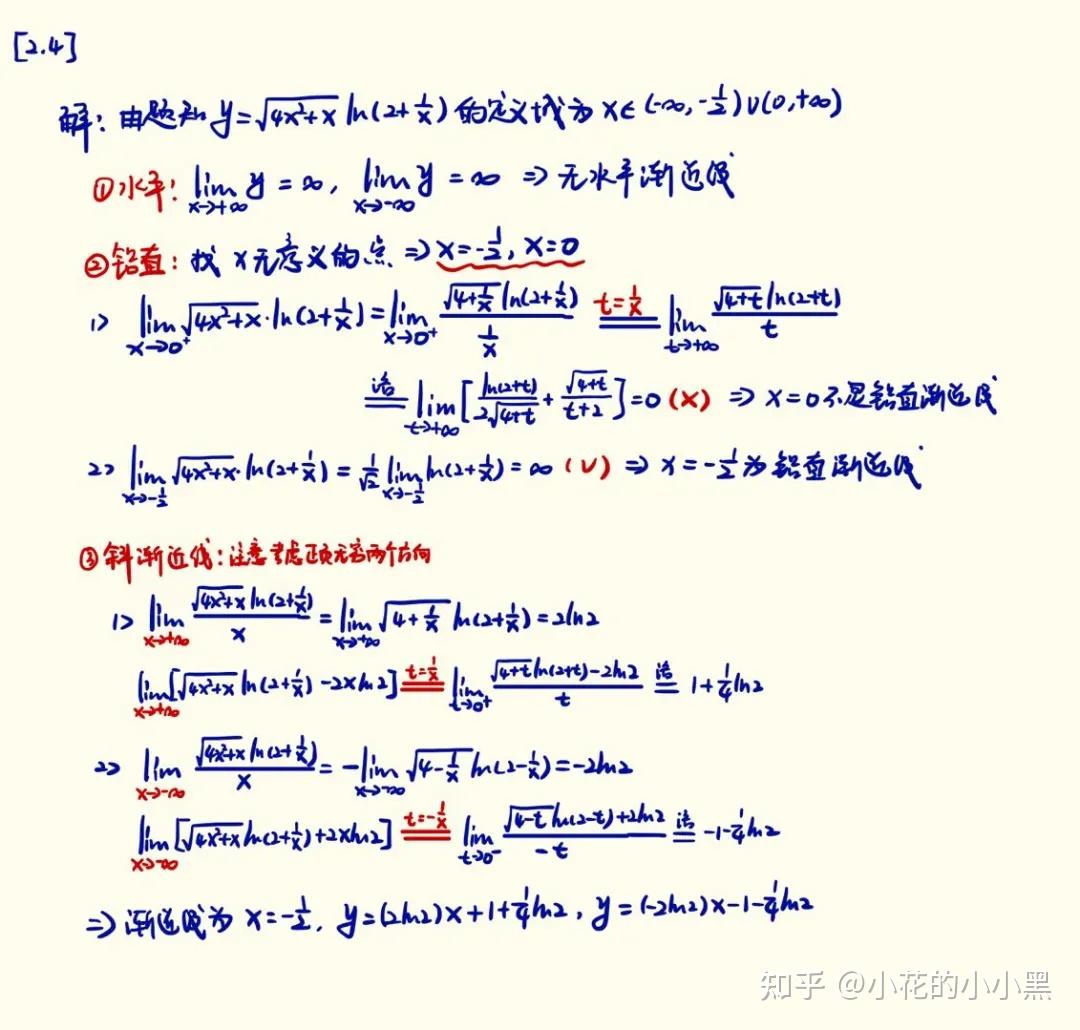 [2.4]
解：由题知 y=√(4x²+x) ln(2+1/x) 的定义域为 x∈(-∞,-1/2)∪(0,+∞)
①水平：lim_{x→+∞} y = ∞, lim_{x→-∞} y = ∞ ⇒ 无水平渐近线
②铅直：找 x 无意义的点 ⇒ x=-1/2, x=0
1> lim_{x→0⁺} √(4x²+x)·ln(2+1/x) = lim_{x→0⁺} √(4+1/x) ln(2+1/x) / (1/x) =(t=1/x)= lim_{t→+∞} √(4+t) ln(2+t) / t
=(洛)= lim_{t→+∞} [ln(2+t)/(2√(4+t)) + √(4+t)/(t+2)] = 0 (×) ⇒ x=0不是铅直渐近线
2> lim_{x→-1/2} √(4x²+x)·ln(2+1/x) = 1/√2 lim_{x→-1/2} ln(2+1/x) = ∞ (√) ⇒ x=-1/2为铅直渐近线
③斜渐近线：注意考虑正负无穷两个方向
1> lim_{x→+∞} √(4x²+x) ln(2+1/x) / x = lim_{x→+∞} √(4+1/x) ln(2+1/x) = 2ln2
lim_{x→+∞} [√(4x²+x) ln(2+1/x) - 2xln2] =(t=1/x)= lim_{t→0⁺} (√(4+t) ln(2+t) - 2ln2) / t =(洛)= 1+1/4 ln2
2> lim_{x→-∞} √(4x²+x) ln(2+1/x) / x = -lim_{x→-∞} √(4-1/x) ln(2-1/x) = -2ln2
lim_{x→-∞} [√(4x²+x) ln(2+1/x) + 2xln2] =(t=-1/x)= lim_{t→0⁻} (√(4-t) ln(2-t) + 2ln2) / (-t) =(洛)= -1-1/4 ln2
⇒ 渐近线为 x=-1/2, y=(2ln2)x+1+1/4 ln2, y=(-2ln2)x-1-1/4 ln2
知乎 @小花的小小黑